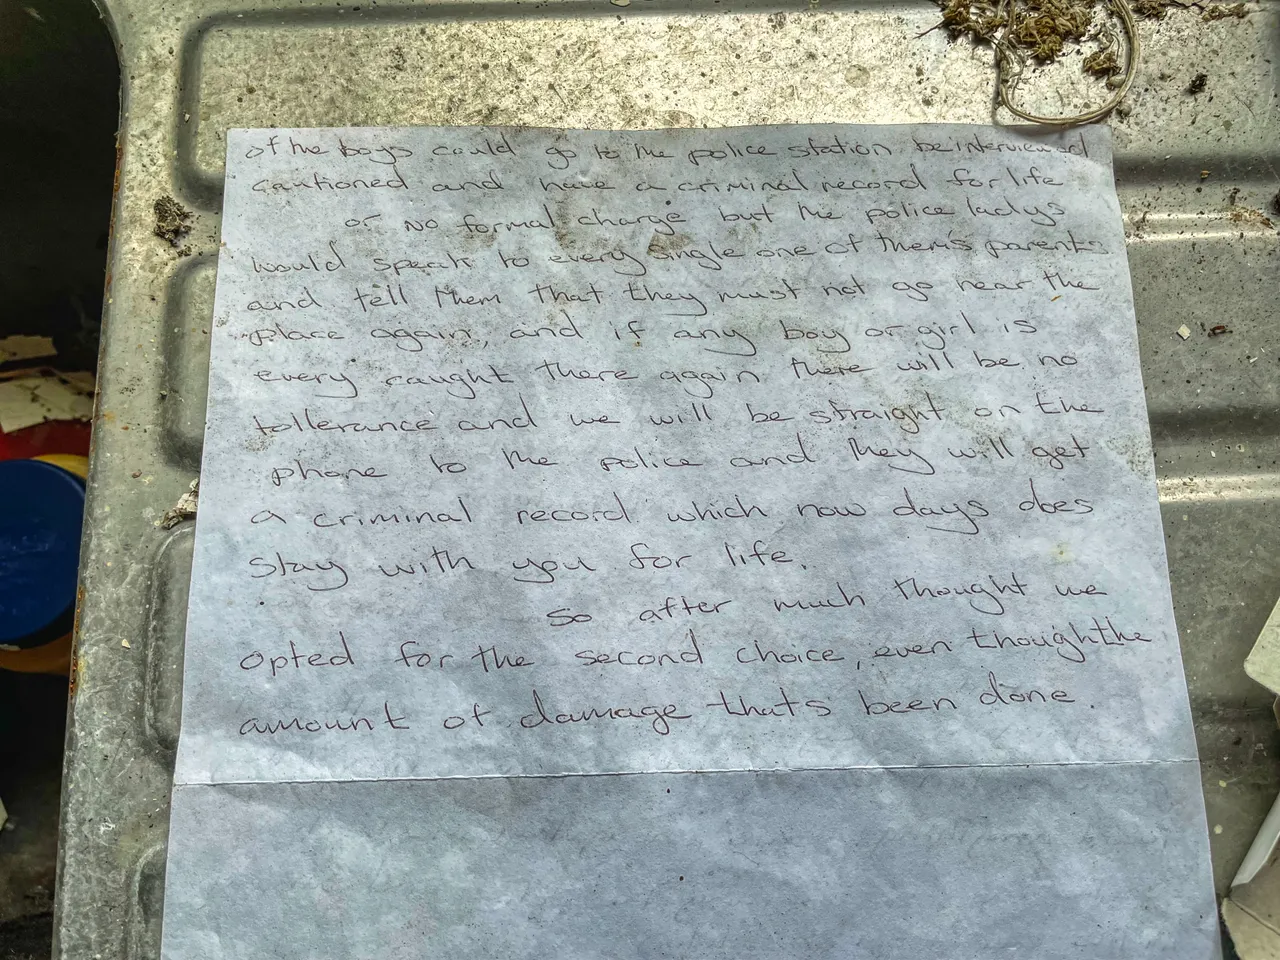 of the boys could go to the police station be interviewed
cautioned and have a criminal record for life
or no formal charge but the police ladys
would speak to every single one of them's parents
and tell them that they must not go near the
place again, and if any boy or girl is
every caught there again there will be no
tollerance and we will be straight on the
phone to the police and they will get
a criminal record which now days does
stay with you for life.
So after much thought we
opted for the second choice, even though the
amount of damage thats been done.